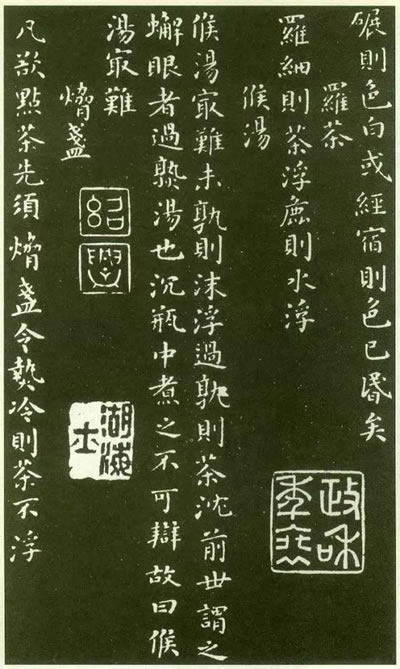 碾則色白或經宿則色已昬矣
羅茶
羅細則茶浮麁則水浮
候湯
候湯㝡難未孰則沫浮過孰則茶沈前世謂之
蠏眼者過熟湯也沉瓶中煮之不可辯故曰候
湯㝡難
熁盞
紹興
凡欲點茶先須熁盞令熱冷則茶不浮